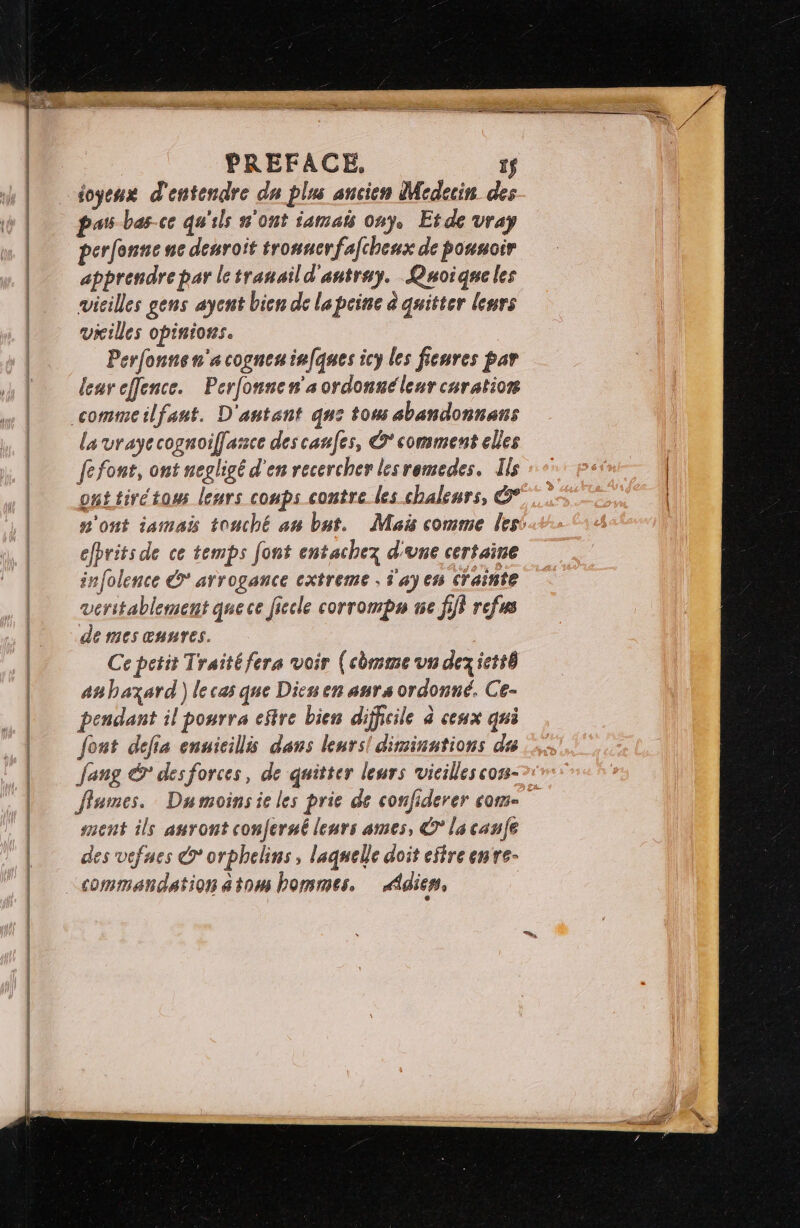 PREFACE. 15
ioyeux d'entendre du plus ancien Medecin des
païs bas ce qu'ils n'ont iamais ouy. Et de vray
personne ne deuroit trouuer fascheux de pouuoir
apprendre par le trauail d'autruy. Quoi que les
vieilles gens ayent bien de la peine à quitter leurs
vieilles opinions.
Personne n'a cogneu iusques icy les fieures par
leur essence. Personne n'a ordonné leur curation
comme il faut. D'autant que tous abandonnans
la vraye cognoissance des causes, & comment elles
se font, ont negligé d'en recercher les remedes. Ils
ont tiré tous leurs coups contre les chaleurs, &
n'ont iamais touché au but. Mais comme les
esprits de ce temps sont entachez d'vne certaine
insolence & arrogance extreme, i'ay eu crainte
veritablement que ce siecle corrompu ne fist refus
de mes œuures.
Ce petit Traité fera voir (còmme vn dez iettô
au hazard) le cas que Dieu en aura ordonné. Ce-
pendant il pourra estre bien difficile à ceux qui
sont desia enuieillis dans leurs diminutions du
sang & des forces, de quitter leurs vieilles cou-
stumes. Du moins ie les prie de considerer com-
ment ils auront conserué leurs ames, & la cause
des vefues & orphelins, laquelle doit estre en re-
commandation à tous hommes. Adieu,